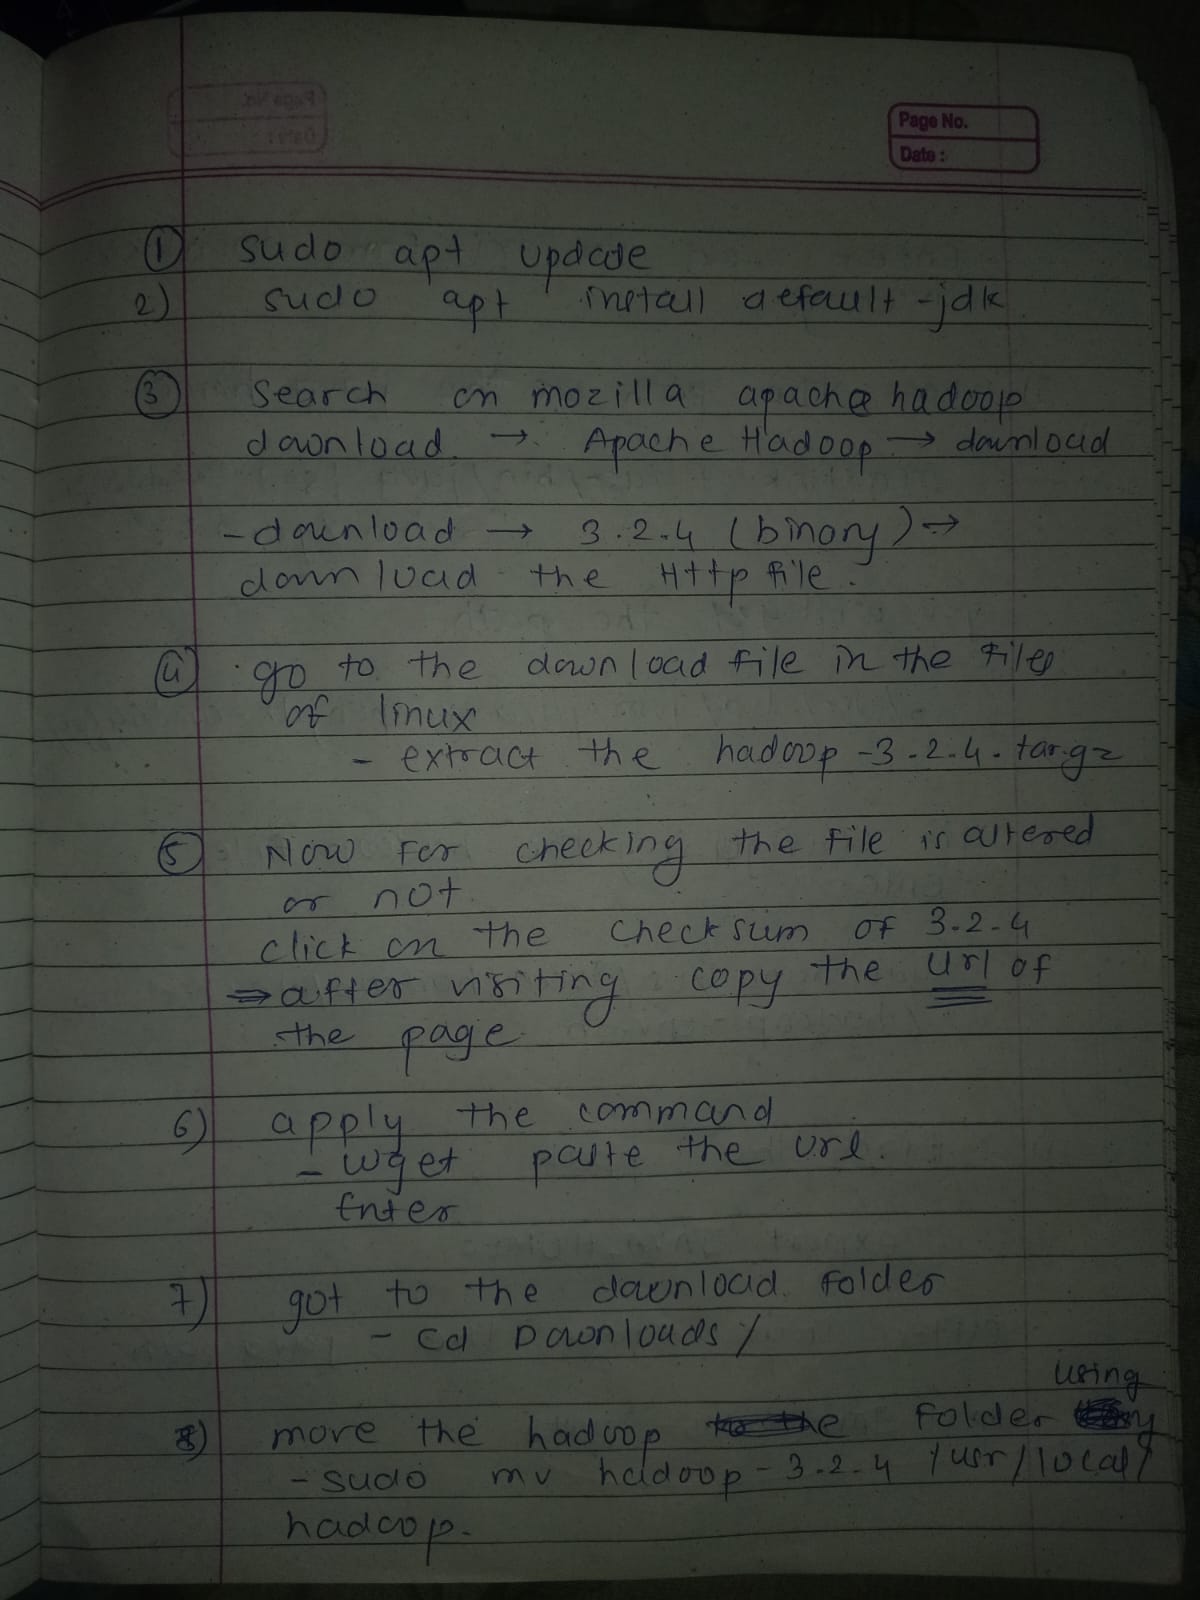 Page No.
Date :
① sudo apt update
2) sudo apt install default-jdk
③ Search on mozilla apache hadoop
download → Apache Hadoop → download
- download → 3.2.4 (binary) →
download the Http file.
④ go to the download file in the files
of linux
- extract the hadoop-3.2.4.tar.gz
⑤ Now for checking the file is altered
or not
click on the checksum of 3.2.4
⇒ after visiting copy the url of
the page
6) apply the command
- wget paste the url.
Enter
7) got to the download folder
- cd Downloads/
using
8) move the hadoop folder
- sudo mv hadoop-3.2.4 /usr/local/
hadoop.